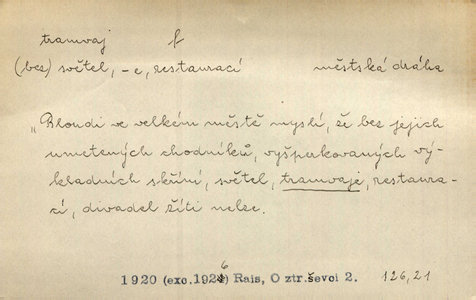 tramvaj f
(bez) světel, -e, restaurací městská dráha
„Bloudi ve velkém městě myslí, že bez jejich
umetených chodníků, vyšperkovaných vý-
kladních skříní, světel, tramvaje, restaura-
cí, divadel žíti nelze.
1920 (exc. 1926) Rais, O ztr. ševci 2. 126,21